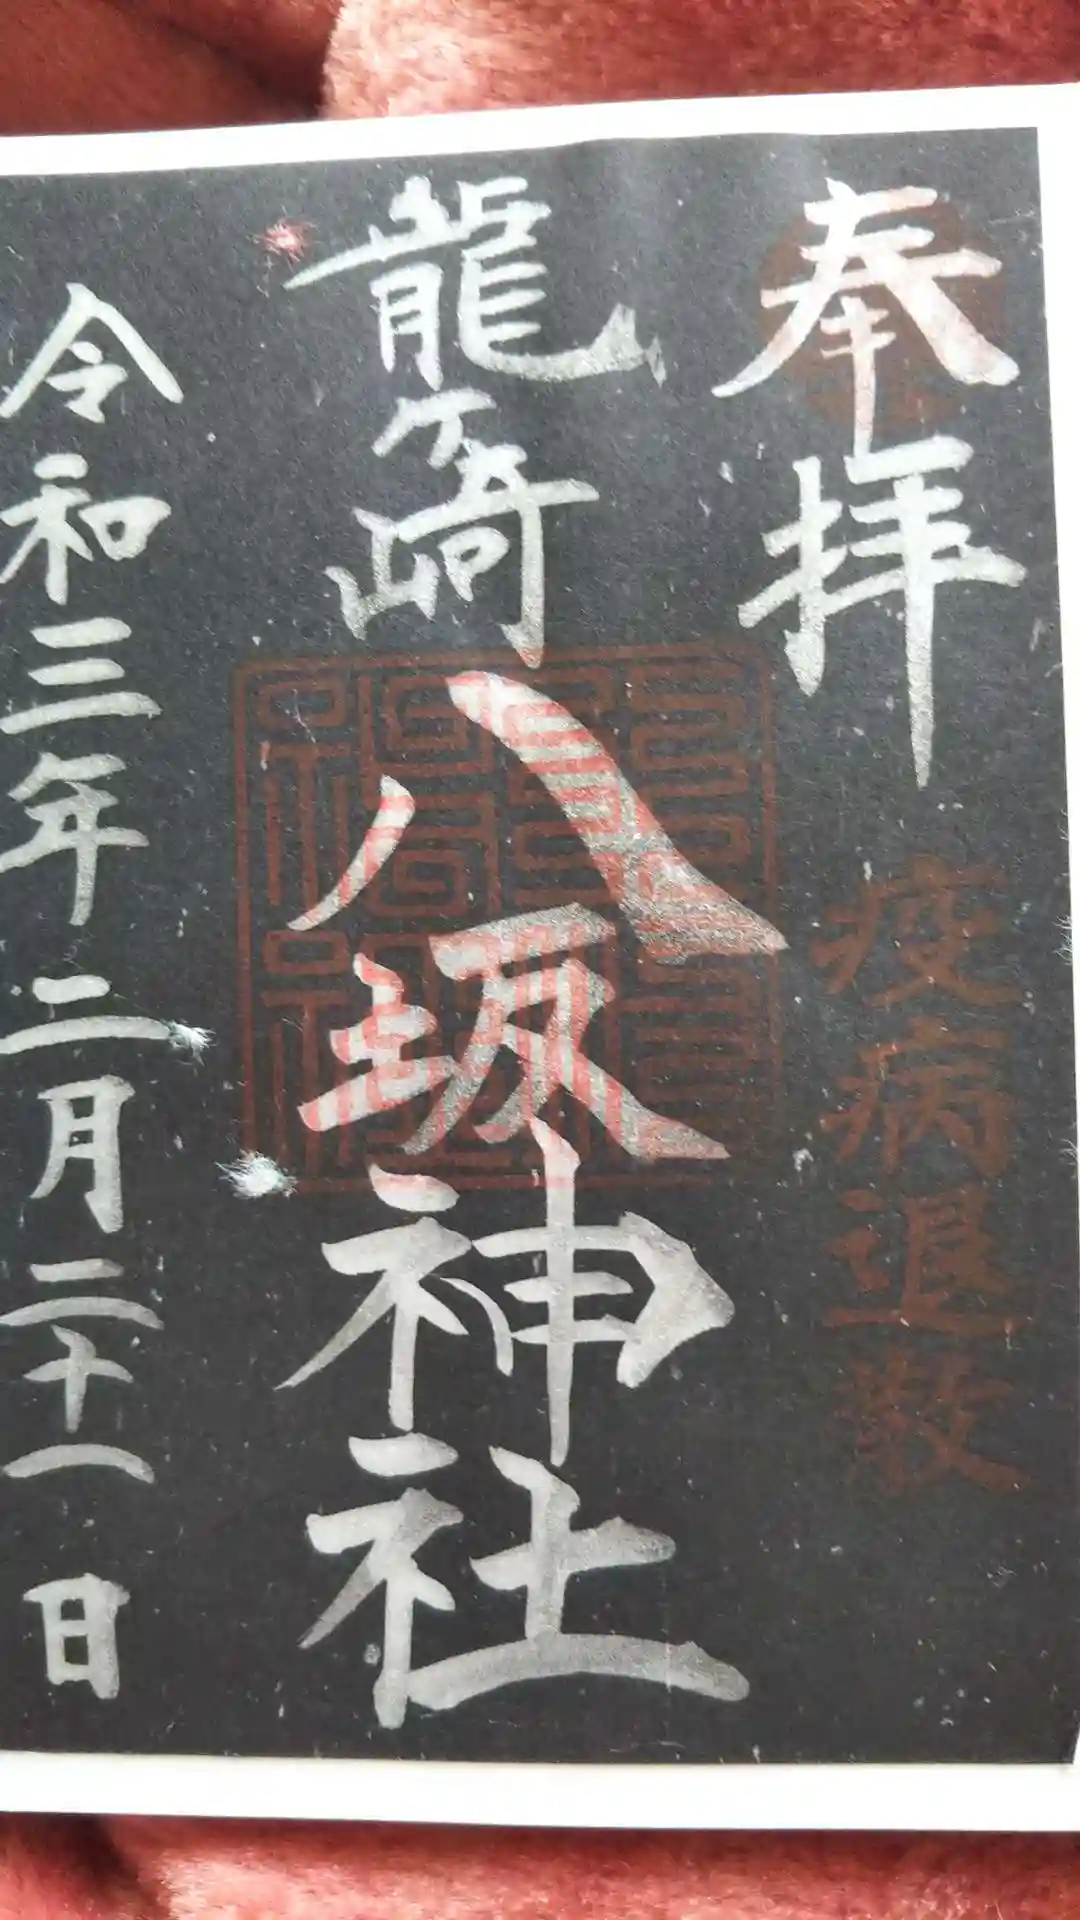 奉拝
疫病退散
龍ケ崎
八坂神社
令和三年二月二十一日